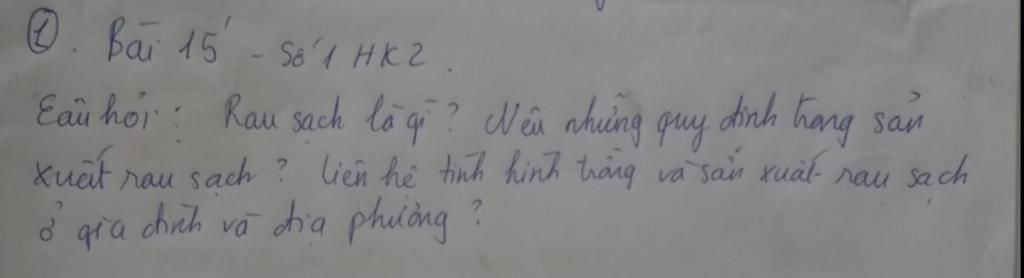 ①. Bài 15' - Số 1 HK2.
Câu hỏi: Rau sạch là gì? Nêu những quy định trong sản
xuất rau sạch? Liên hệ tình hình trồng và sản xuất rau sạch
ở gia đình và địa phương?